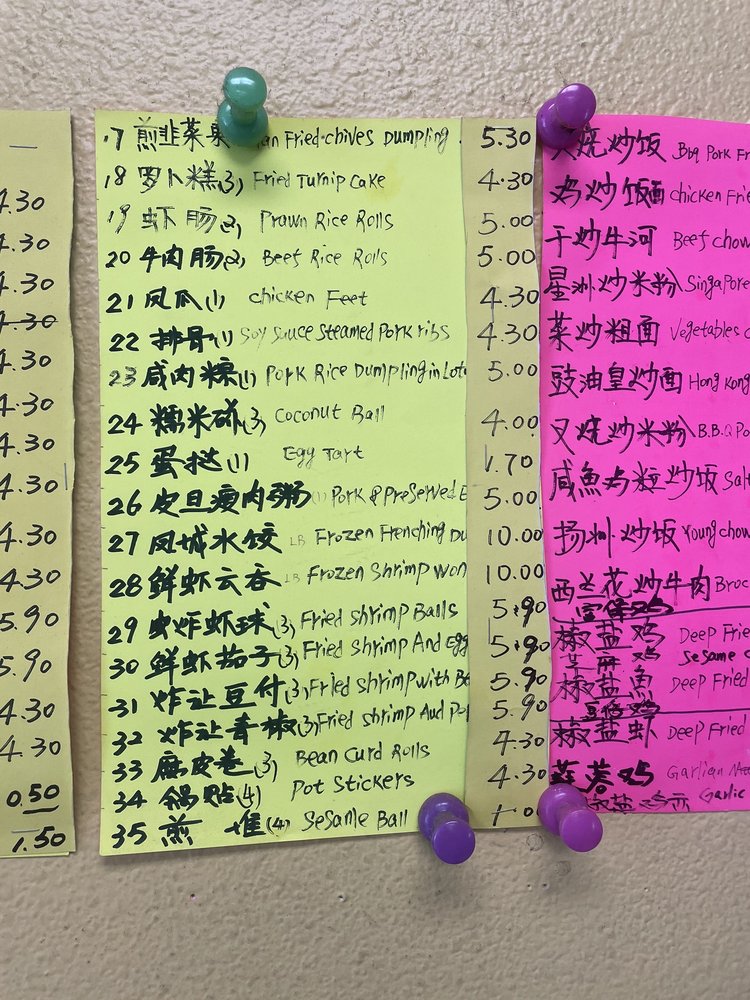 4.30
4.30
4.30
4.30
4.30
4.30
4.30
4.30
4.30
4.30
5.90
5.90
4.30
4.30
0.50
1.50
17 煎韭菜 Fried chives Dumpling 5.30
18 萝卜糕(3) Fried Turnip Cake 4.30
19 虾肠(2) Prawn Rice Rolls 5.00
20 牛肉肠(2) Beef Rice Rolls 5.00
21 凤爪(1) chicken Feet 4.30
22 排骨(1) Soy Sauce Steamed Pork ribs 4.30
23 咸肉粽(1) Pork Rice Dumpling in Lotu 5.00
24 糯米糍(3) Coconut Ball 4.00
25 蛋挞(1) Egg Tart 1.70
26 皮旦瘦肉粥(1) Pork & Preserved E 5.00
27 凤城水饺 LB Frozen Frenching Du 10.00
28 鲜虾云吞 LB Frozen Shrimp Won 10.00
29 炸虾球(3) Fried Shrimp Balls 5.90
30 鲜虾茄子(3) Fried Shrimp And Egg 5.90
31 炸让豆付(3) Fried Shrimp with Be 5.90
32 炸让青椒(3) Fried Shrimp Aud Pep 5.90
33 腐皮卷(3) Bean Curd Rolls 4.30
34 锅贴(4) Pot Stickers 4.30
35 煎堆(4) Sesame Ball
叉烧炒饭 BBQ Pork Fr
鸡炒饭面 chicken Frie
干炒牛河 Beef chow
星洲炒米粉 Singapore
菜炒粗面 Vegetables c
豉油皇炒面 Hong Kong
叉烧炒米粉 B.B.Q Po
咸魚鸡粒炒饭 Salt
扬州炒饭 Young chow
西兰花炒牛肉 Broc
椒盐鸡 Deep Frie
芝麻鸡 Sesame c
椒盐魚 Deep Fried
椒盐虾 Deep Fried
蒜蓉鸡
Garlic